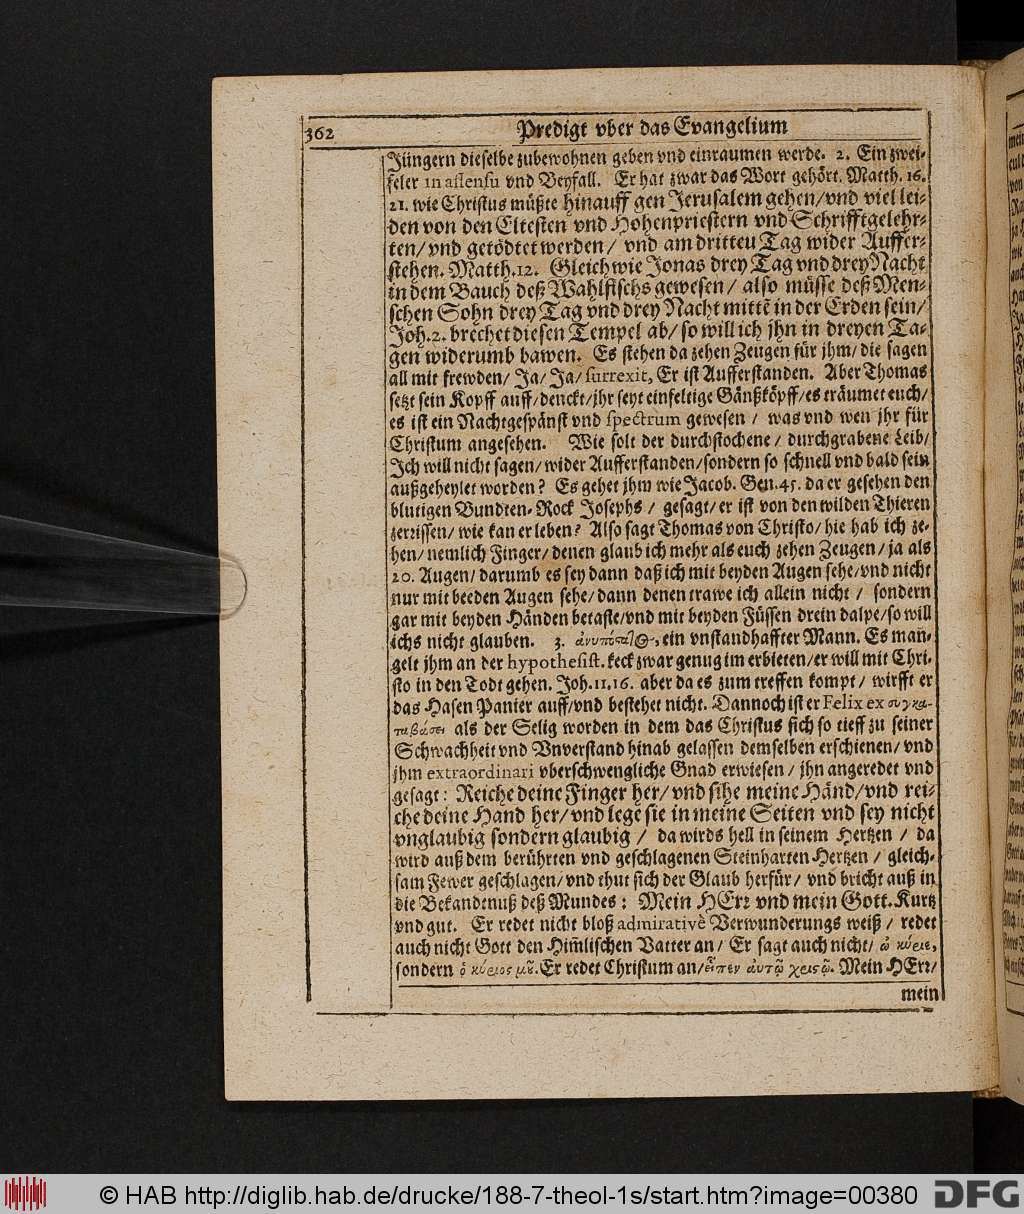 362
Predigt vber das Evangelium
Jüngern dieselbe zubewohnen geben vnd einraumen werde. 2. Ein zwei-
feler in assensu vnd Beyfall. Er hat zwar das Wort gehört. Matth. 16.
21. wie Christus müßte hinauff gen Jerusalem gehen/vnd viel lei-
den von den Eltesten vnd Hohenpriestern vnd Schrifftgelehr-
ten/ vnd getödtet werden/ vnd am dritteu Tag wider Auffer-
stehen. Matth. 12. Gleich wie Jonas drey Tag vnd drey Nacht
in dem Bauch deß Wahlfischs gewesen/ also müsse deß Men-
schen Sohn drey Tag vnd drey Nacht mittē in der Erden sein/
Joh. 2. brechet diesen Tempel ab/ so will ich jhn in dreyen Ta-
gen widerumb bawen. Es stehen da zehen Zeugen für jhm/ die sagen
all mit frewden/ Ja/ Ja/ surrexit, Er ist Aufferstanden. Aber Thomas
setzt sein Kopff auff/denckt/jhr seyt einfeltige Gänßköpff/es träumet euch/
es ist ein Nachtgespänst vnd spectrum gewesen/ was vnd wen jhr für
Christum angesehen. Wie solt der durchstochene/ durchgrabene Leib/
Ich will nicht sagen/wider Aufferstanden/sondern so schnell vnd bald sein
außgeheylet worden? Es gehet jhm wie Jacob. Gen. 45. da er gesehen den
blutigen Bundten-Rock Josephs/ gesagt/er ist von den wilden Thieren
zerrissen/ wie kan er leben? Also sagt Thomas von Christo/ hie hab ich ze-
hen/ nemlich Finger/ denen glaub ich mehr als euch zehen Zeugen/ ja als
20. Augen/ darumb es sey dann daß ich mit beyden Augen sehe/vnd nicht
nur mit beeden Augen sehe/ dann denen trawe ich allein nicht/ sondern
gar mit beyden Händen betaste/vnd mit beyden Füssen drein dalpe/so will
ichs nicht glauben. 3. ein vnstandhaffter Mann. Es man-
gelt jhm an der hypothesist. keck zwar genug im erbieten/er will mit Chri-
sto in den Todt gehen. Joh. 11, 16. aber da es zum treffen kompt/ wirfft er
das Hasen Panier auff/vnd bestehet nicht. Dannoch ist er Felix ex συγκα-
ταβάσει als der Selig worden in dem das Christus sich so tieff zu seiner
Schwachheit vnd Vnverstand hinab gelassen demselben erschienen/ vnd
jhm extraordinari vberschwengliche Gnad erwiesen/ jhn angeredet vnd
gesagt: Reiche deine Finger her/ vnd sihe meine Händ/vnd rei-
che deine Hand her/ vnd lege sie in meine Seiten vnd sey nicht
vnglaubig sondern glaubig/ da wirds hell in seinem Hertzen/ da
wird auß dem berührten vnd geschlagenen Steinharten Hertzen/ gleich-
sam Fewer geschlagen/vnd thut sich der Glaub herfür/ vnd bricht auß in
die Bekandtnuß deß Mundes: Mein HErr vnd mein Gott. Kurtz
vnd gut. Er redet nicht bloß admirativè Verwunderungs weiß/ redet
auch nicht Gott den Him̄lischen Vatter an/ Er sagt auch nicht/ ὦ κύριε,
sondern ὁ κύριος μȣ. Er redet Christum an/ εἶπεν αὐτῷ χριςῷ. Mein HErr/
mein
© HAB http://diglib.hab.de/drucke/188-7-theol-1s/start.htm?image=00380
DFG